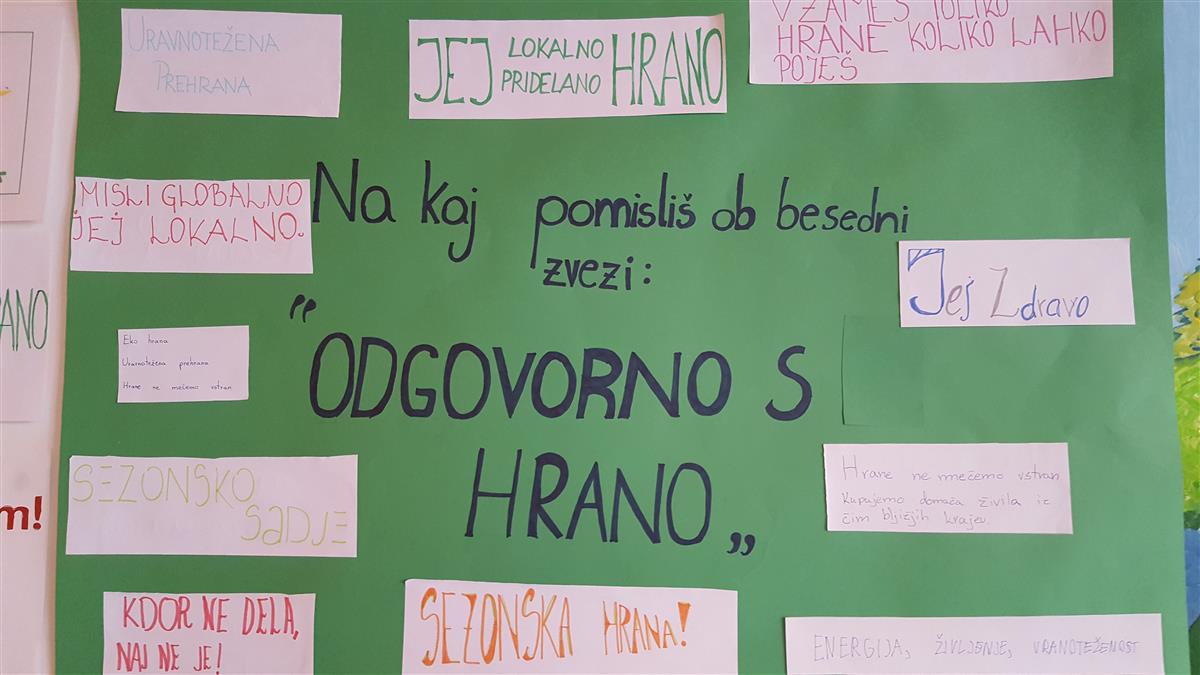 URAVNOTEŽENA
PREHRANA
JEJ LOKALNO PRIDELANO HRANO
VZAMEŠ TOLIKO
HRANE KOLIKO LAHKO
POJEŠ
MISLI GLOBALNO
JEJ LOKALNO.
Na kaj pomisliš ob besedni
zvezi:
"ODGOVORNO S
HRANO„
Jej Zdravo
ANO
Eko hrana
Uravnotežena prehrana
Hrane ne mečemo vstran
SEZONSKO
SADJE
Hrane ne mečemo vstran
Kupujemo domača živila iz
čim bljižjih krajev.
m!
KDOR NE DELA,
NAJ NE JE!
SEZONSKA HRANA!
ENERGIJA, ŽIVLJENJE, VRANOTEŽENOST